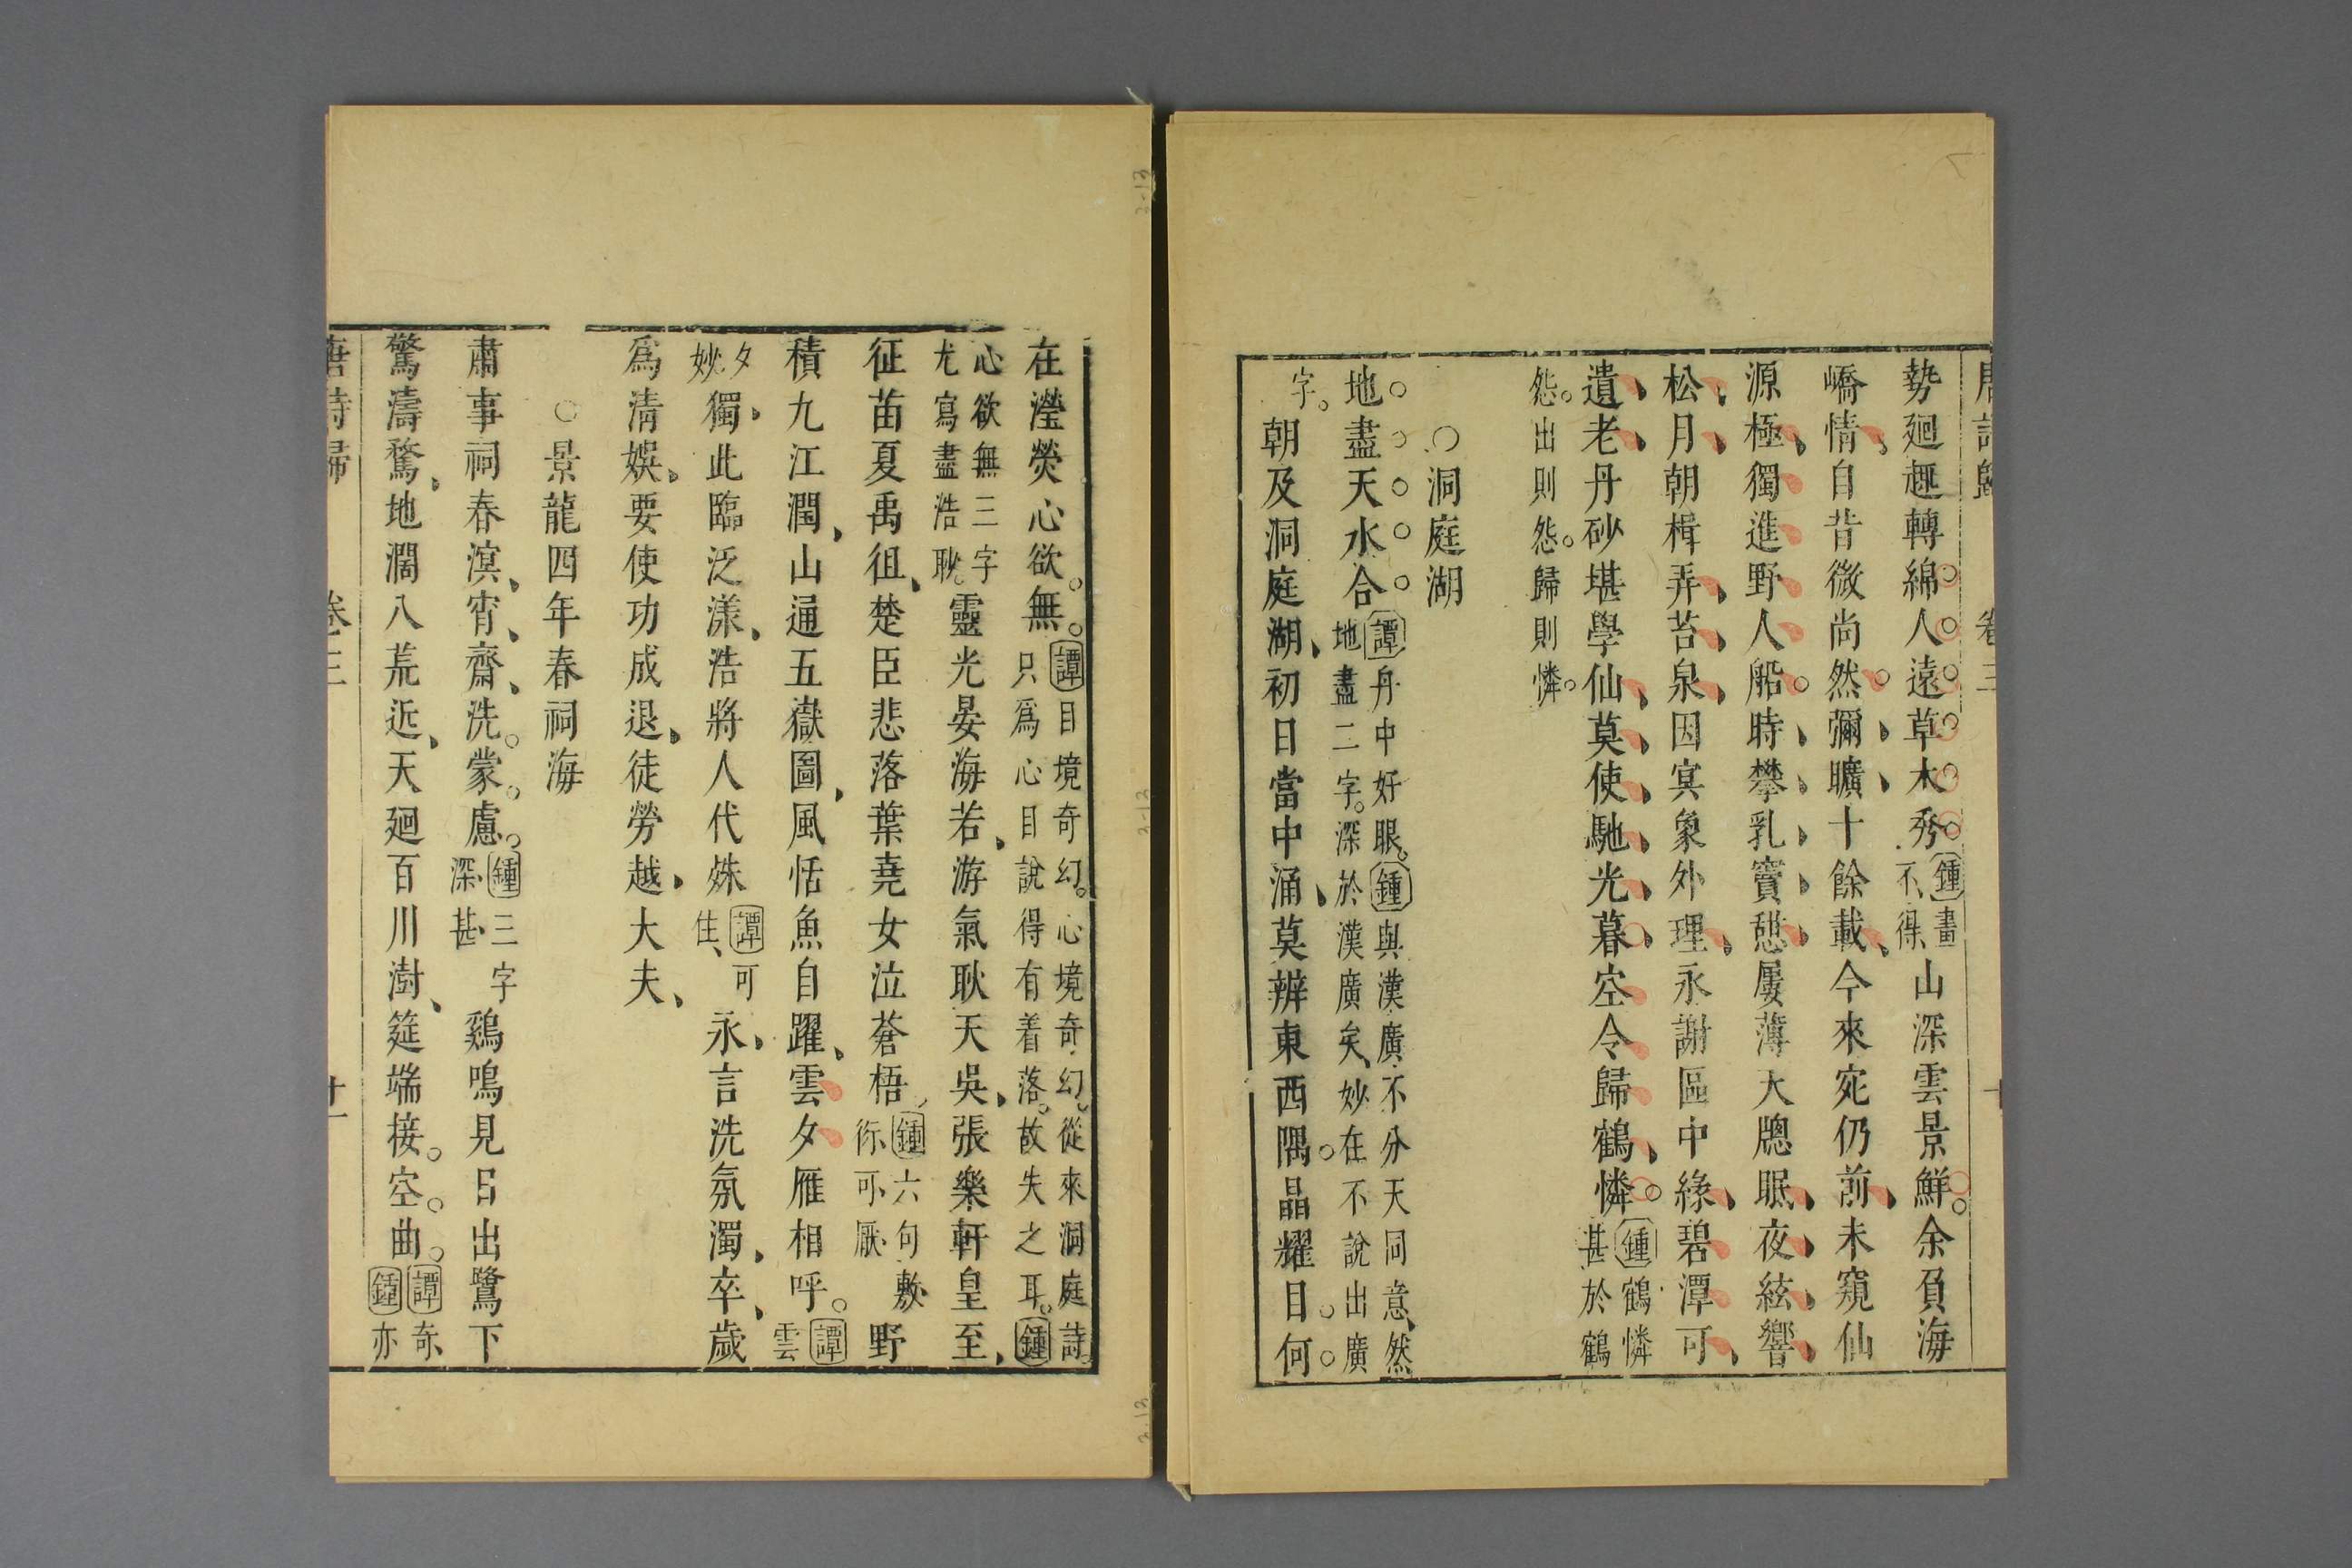 唐詩歸 卷三 十
勢廻趣轉綿人遠草木秀鍾畫不得山深雲景鮮余負海
嶠情自昔微尚然彌曠十餘載今來宛仍前未窺仙
源極獨進野人船時攀乳竇憩屢薄天牕眠夜絃響
松月朝楫弄苔泉因冥象外理永謝區中緣碧潭可
遺老丹砂堪學仙莫使馳光暮空令歸鶴憐鍾鶴憐甚於鶴
怨出則怨歸則憐
○洞庭湖
地盡天水合譚丹中好眼鍾與漢廣不分天同意然地盡二字深於漢廣矣妙在不說出廣
字朝及洞庭湖初日當中涌莫辨東西隅晶耀目何
在瀅熒心欲無譚目境奇幻心境奇幻從來洞庭詩只爲心目說得有着落故失之耳鍾
心欲無三字尤寫盡浩耿靈光晏海若游氣耿天吳張樂軒皇至
征苗夏禹徂楚臣悲落葉堯女泣蒼梧鍾六句敷衍可厭野
積九江潤山通五嶽圖風恬魚自躍雲夕雁相呼譚雲
夕妙獨此臨泛漾浩將人代殊譚可住永言洗氛濁卒歲
爲清娛要使功成退徒勞越大夫
○景龍四年春祠海
肅事祠春溟宵齋洗蒙慮鍾三字深甚鷄鳴見日出鷺下
驚濤鶩地濶八荒近天廻百川澍筵端接空曲譚奇鍾亦
唐詩歸 卷三 十一